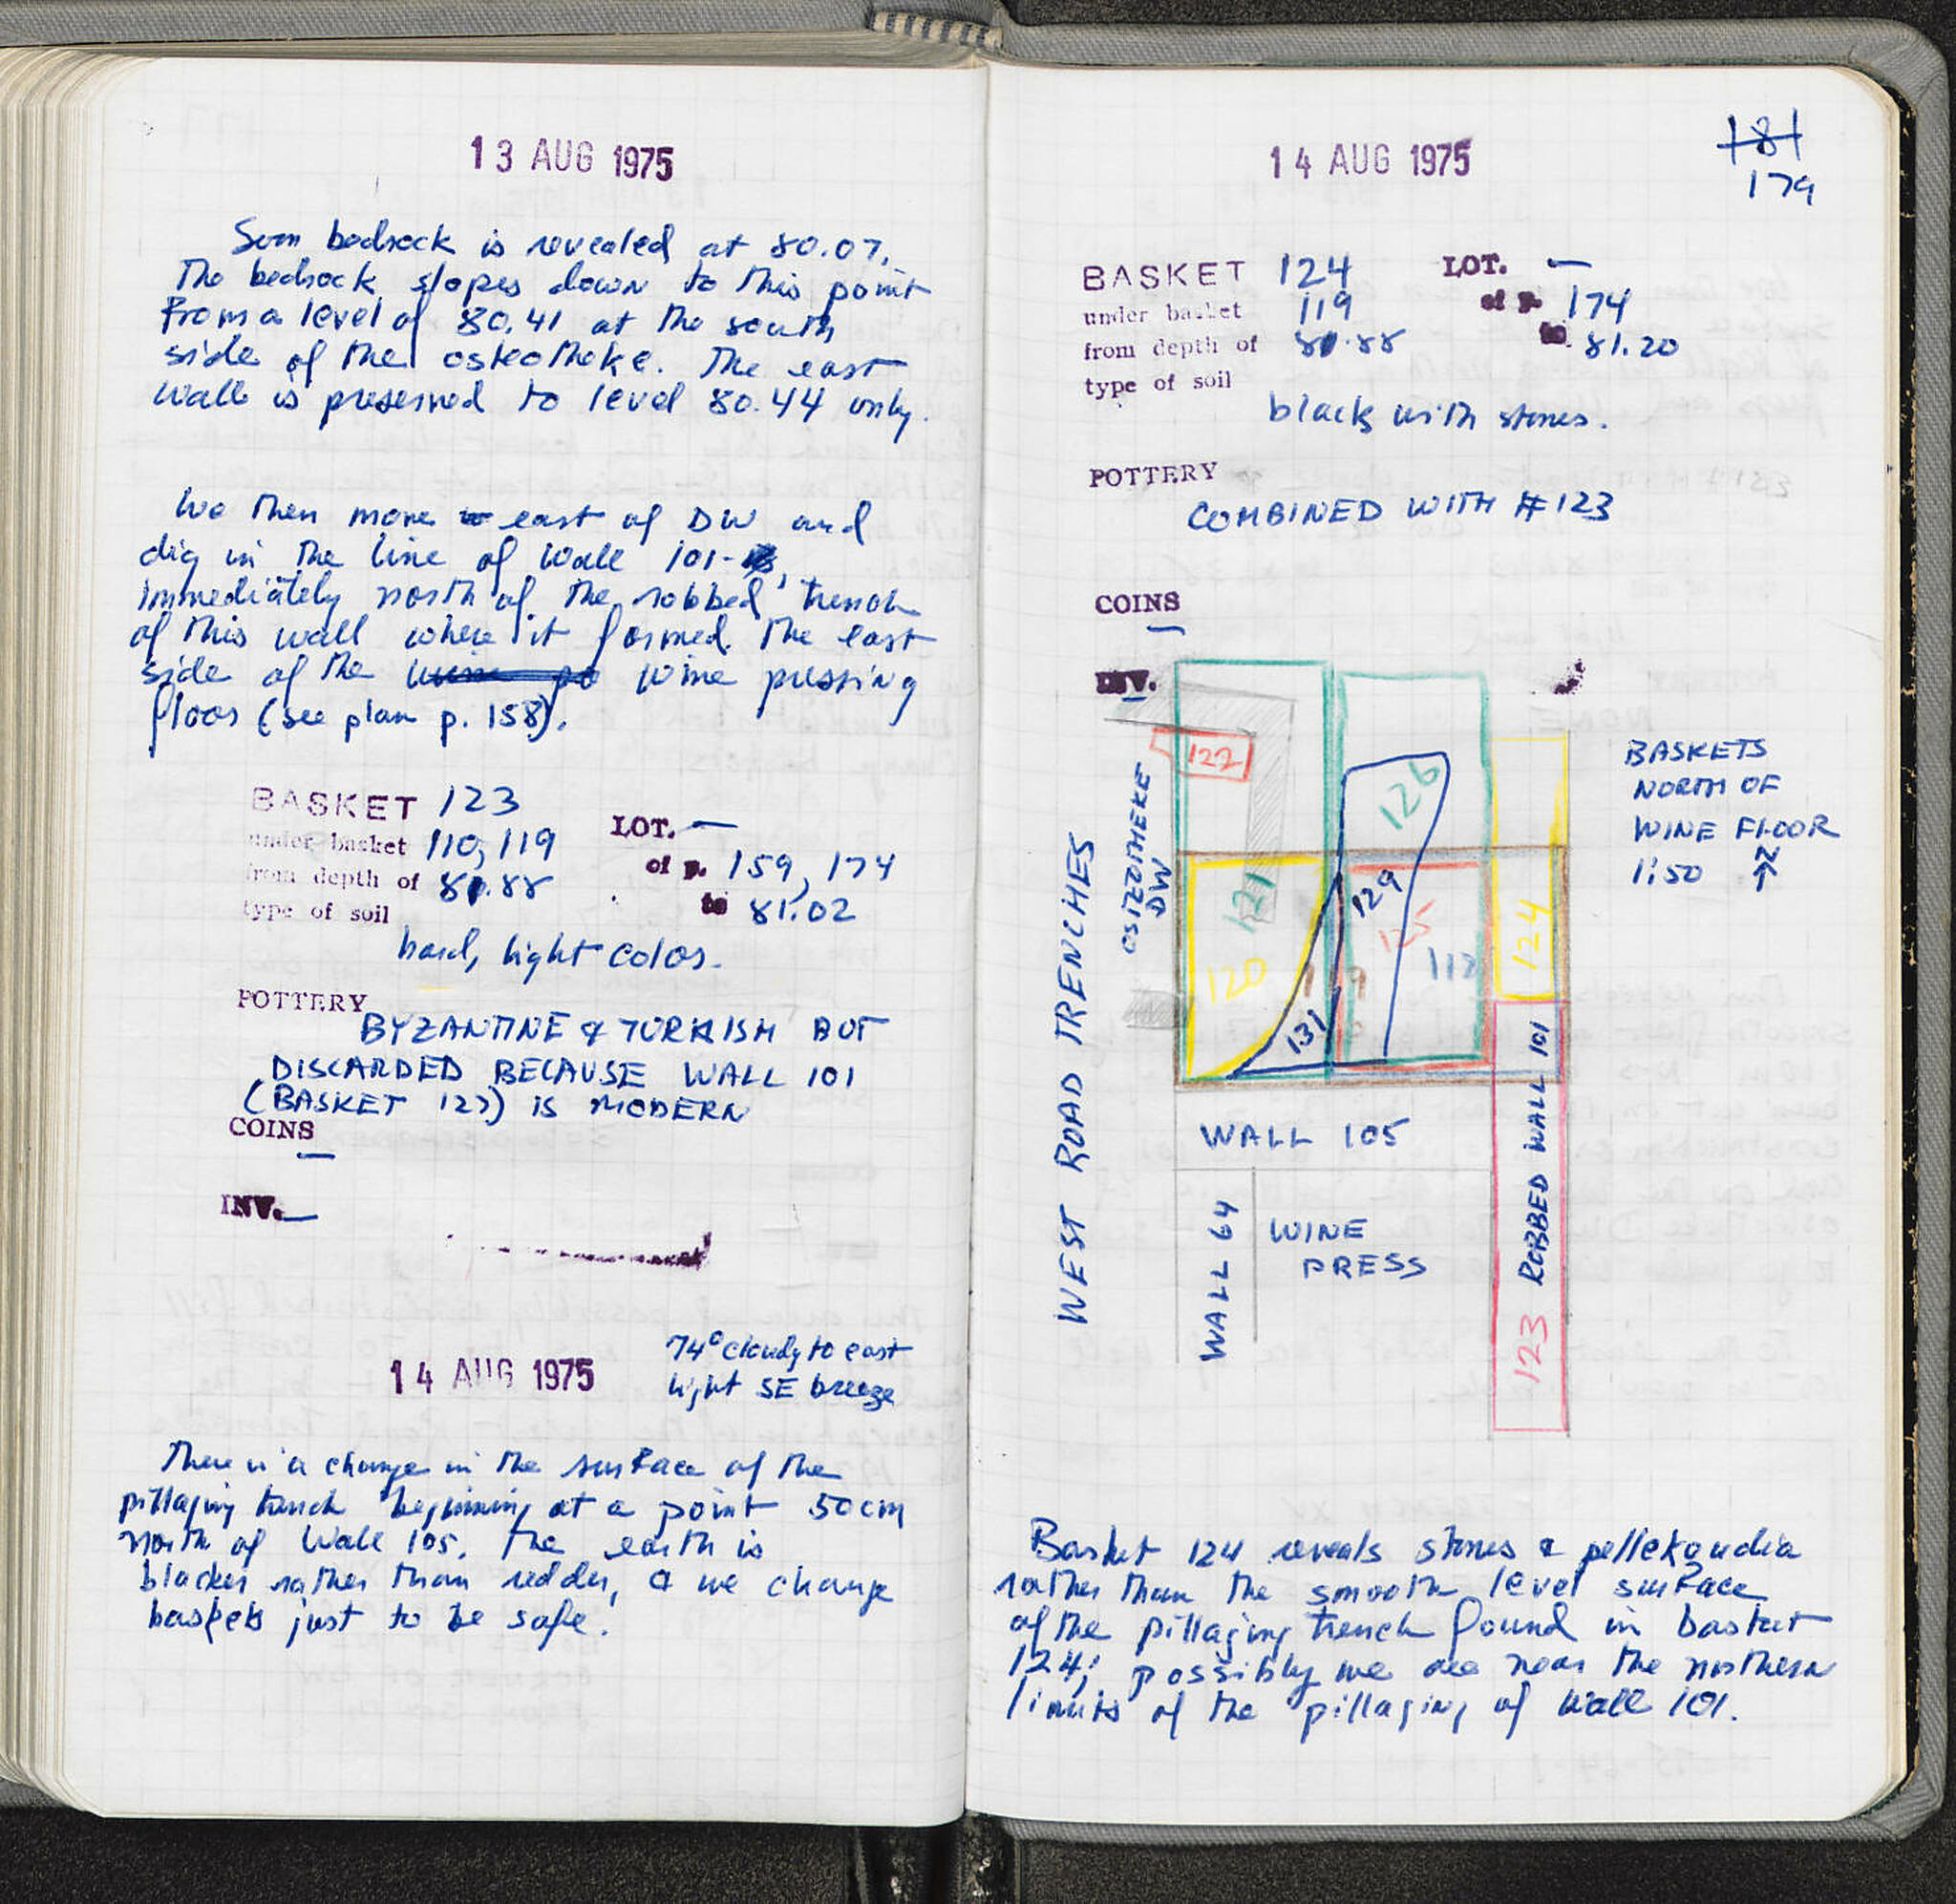 13 AUG 1975
Some bedrock is revealed at 80.07.
The bedrock slopes down to this point
From a level of 80.41 at the south
side of the osteotheke. The east
wall is preserved to level 80.44 only.
We then move east of DW and
dig in the line of Wall 101-
immediately north of the robbed trench
of this wall where it formed the east
side of the wine pressing
floor (see plan p. 158).
BASKET 123
under basket 110, 119
LOT. —
of p. 159, 174
from depth of 81.88
to 81.02
type of soil
hard, light color.
POTTERY
BYZANTINE & TURKISH BUT
DISCARDED BECAUSE WALL 101
(BASKET 127) IS MODERN
COINS
—
INV. —
14 AUG 1975
74° cloudy to east
light SE breeze
There is a change in the surface of the
pillaging trench beginning at a point 50cm
north of Wall 105. The earth is
blacker rather than redder, & we change
baskets just to be safe.
14 AUG 1975
181
179
BASKET 124
LOT. —
under basket 119
of p. 174
from depth of 81.88
to 81.20
type of soil
black with stones.
POTTERY
COMBINED WITH #123
COINS
—
INV.
122
126
BASKETS
NORTH OF
WINE FLOOR
1:50 N
OSIZOTHEKE
DW
WEST ROAD TRENCHES
121
129
125
120
119
112
124
131
WALL 105
WALL 64
WINE
PRESS
123 ROBBED WALL 101
Basket 124 reveals stones & pellekoudia
rather than the smooth level surface
of the pillaging trench found in basket
124; possibly we are near the northern
limits of the pillaging of Wall 101.